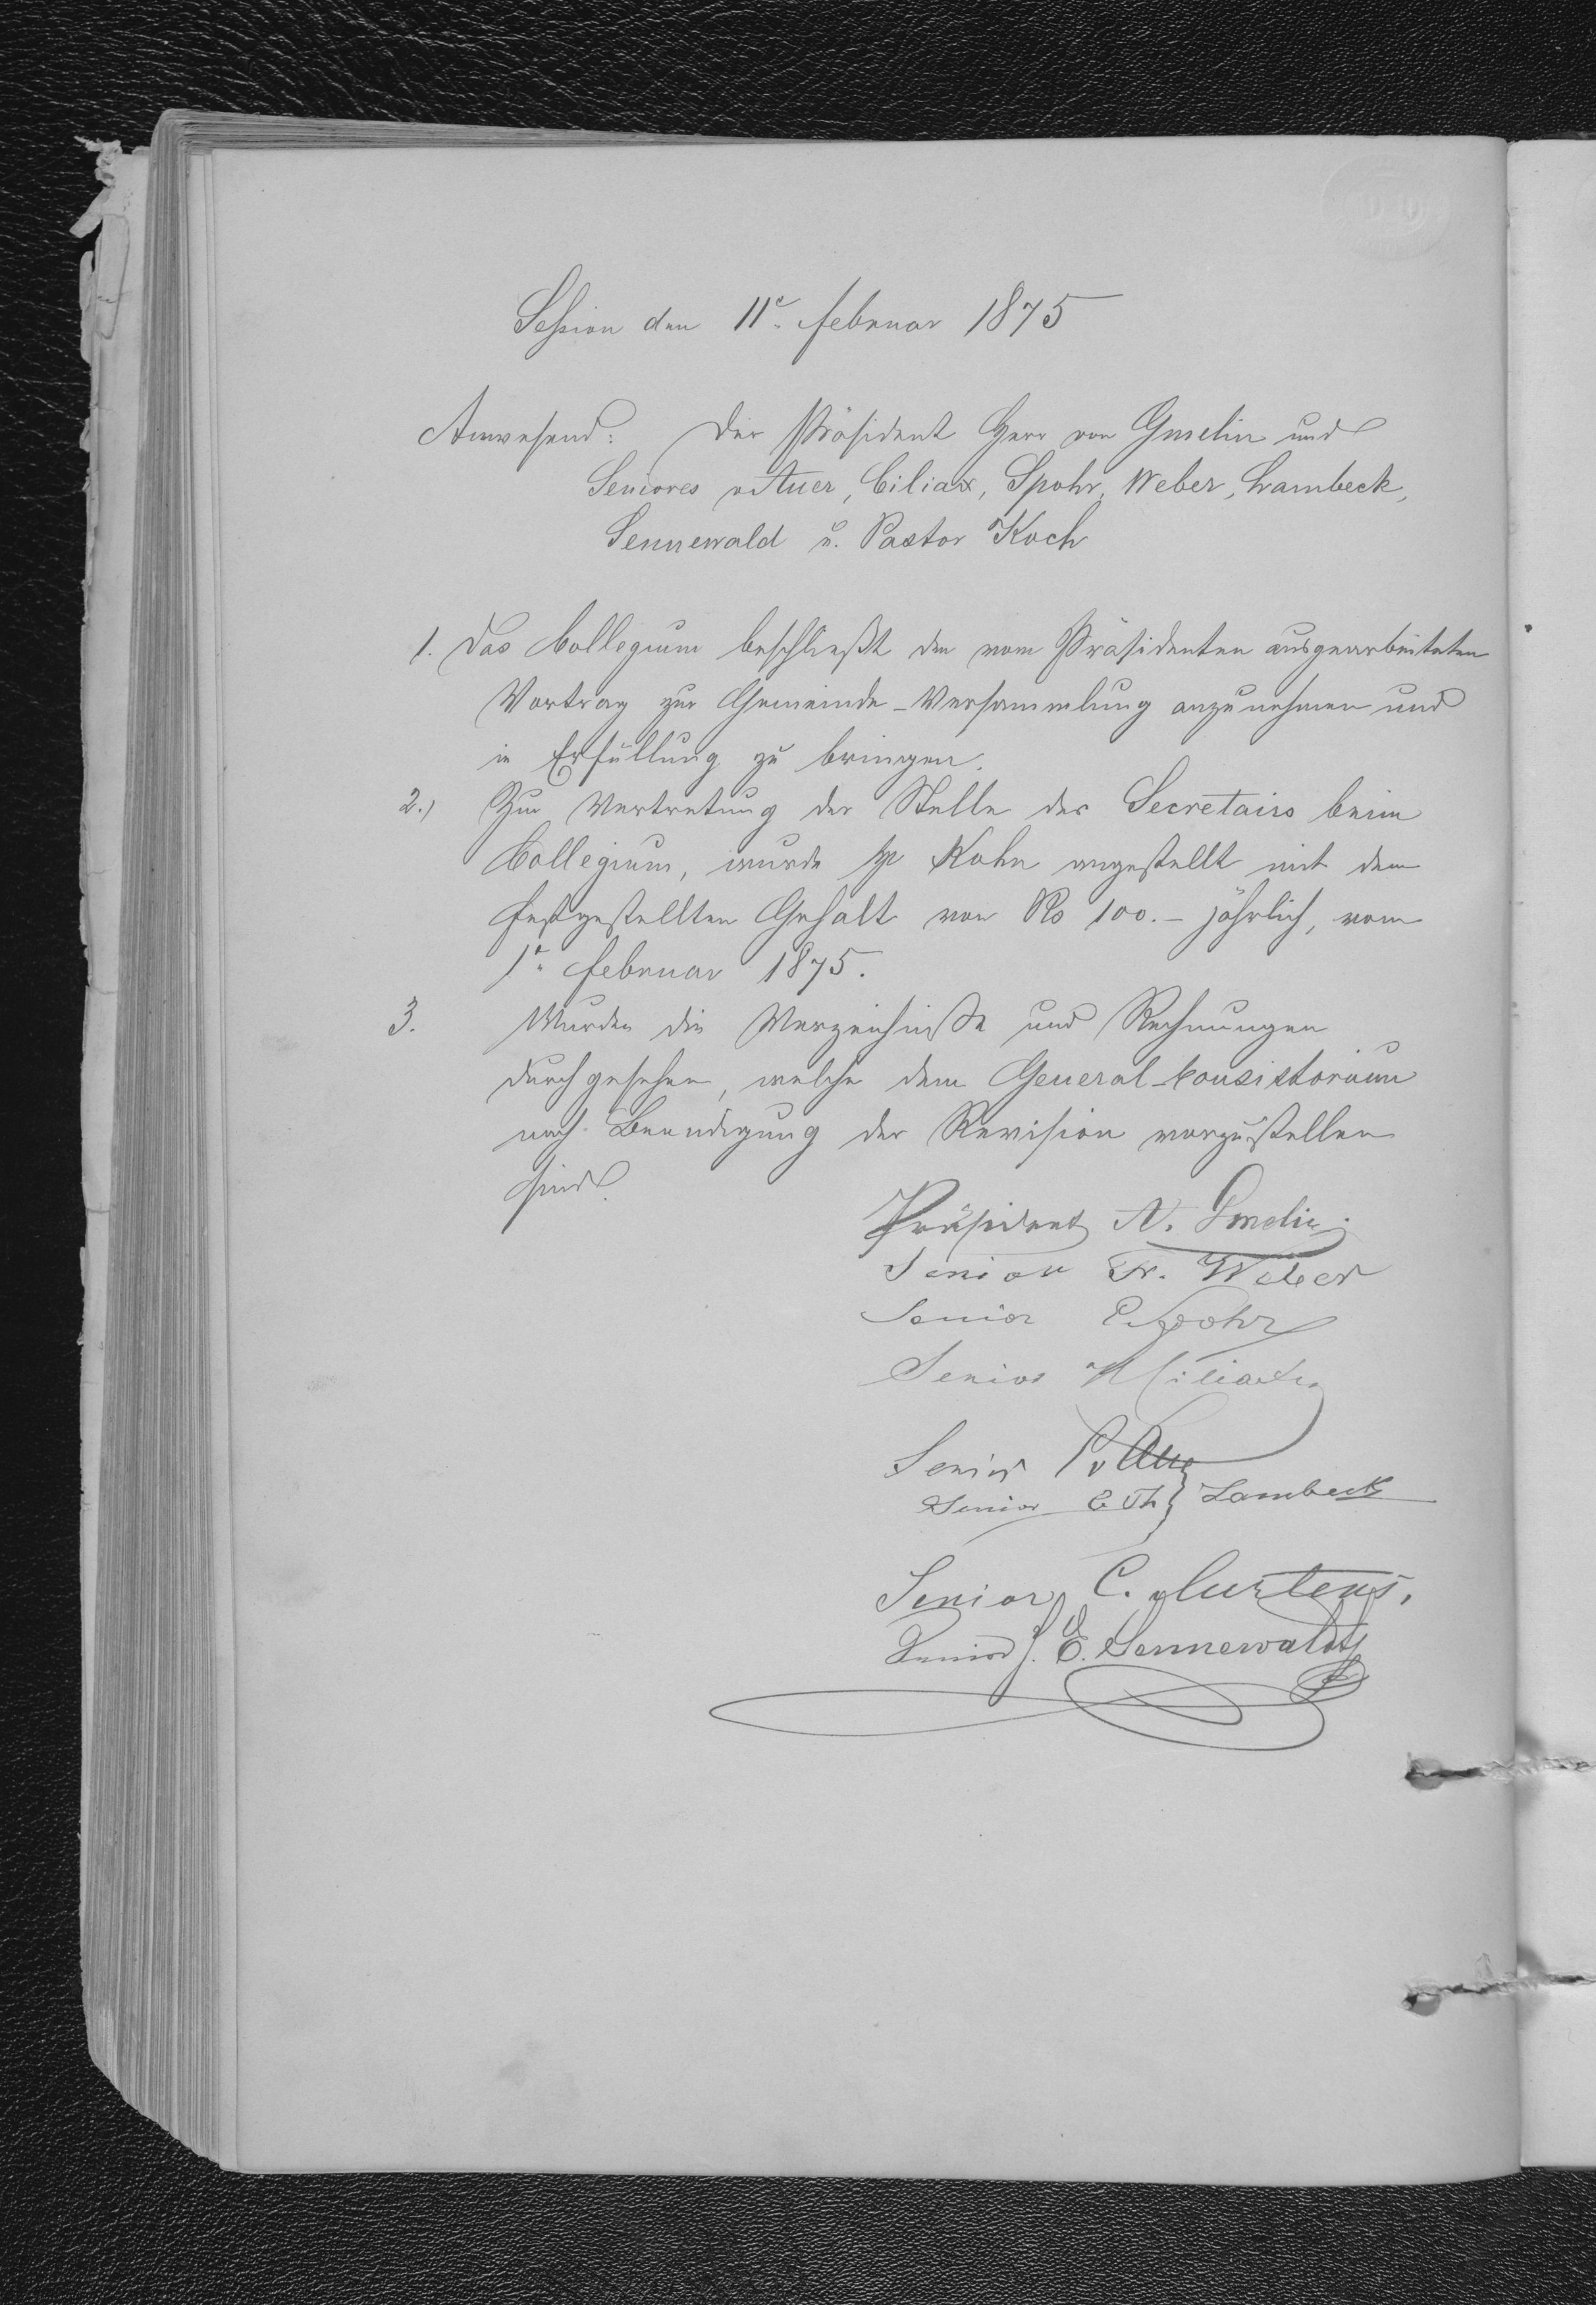 Session den 11e. Februar 1875
Anwesend: Der Präsident Herr von Gmelin und
Seniores v Auer, Ciliax, Spohr, Weber, Lambeck,
Sennewald u. Pastor Koch
1. Das Collegium beschließt den vom Präsidenten ausgearbeiteten
Vortrag zur Gemeinde-Versammlung anzunehmen und
in Erfüllung zu bringen.
2.) Zur Vertretung der Stelle des Secretairs beim
Collegium, wurde Hr Kohn angestellt mit dem
festgestellten Gehalt von Rs 100.- jährlich, vom
1e. Februar 1875.
3. Wurden die Verzeichniße und Rechnungen
durchgesehen, welche dem General-Consistorium
nach Beendigung der Revision vorzustellen
sind.
Präsident N. Gmelin.
Senior Fr. Weber
Senior C Spohr
Senior Ciliax
Senior P v Auer
Senior C Th Lambeck
Senior C. Murtens.
Senior J. E. Sennewaldt